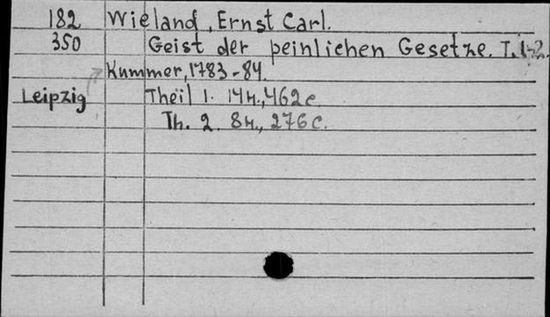 182 Wieland, Ernst Carl.
350 Geist der peinlichen Gesetze. T. 1-2.
Kummer, 1783-84.
Leipzig Theil 1. 14н., 462 с.
Th. 2. 8н., 276 с.